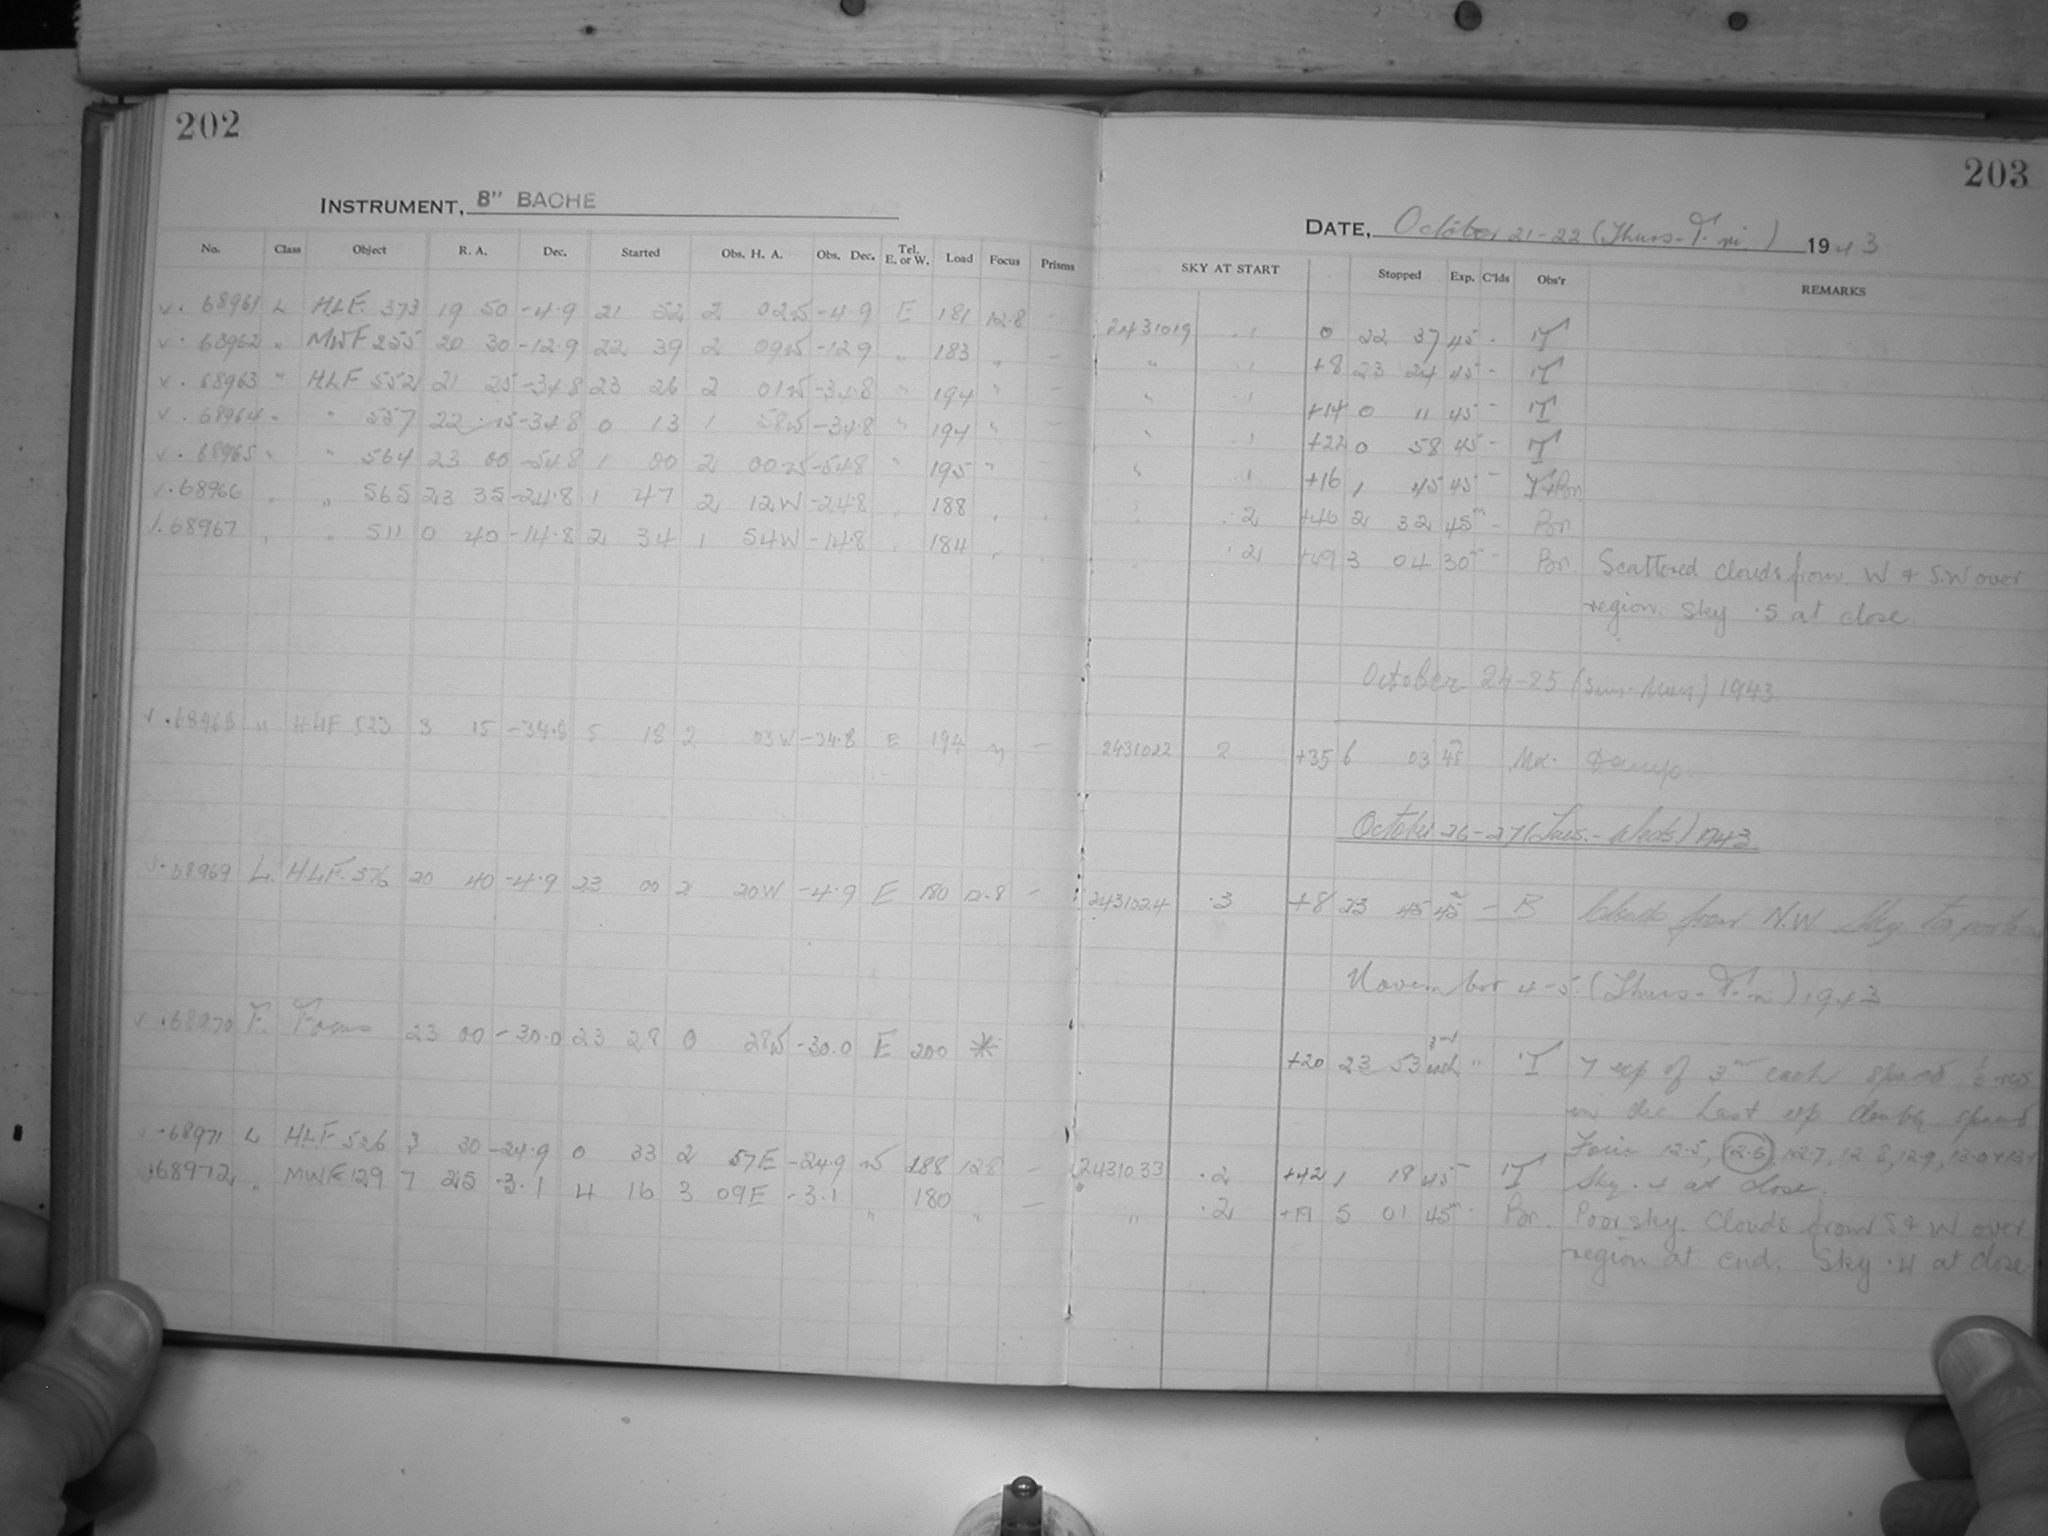 202
203
INSTRUMENT, 8" BACHE
DATE, October 21-22 (Thurs-Fri.) 1943
No. Class Object R. A. Dec. Started Obs. H. A. Obs. Dec. Tel. E. or W. Load Focus Prisms SKY AT START Stopped Exp. C'lds Obs'r REMARKS
v. 68961 L HLF. 373 19 50 -4.9 21 52 2 02W -4.9 E 181 12.8 - 2431019 .1 0 22 37 45 - T
v. 68962 " MWF 255 20 30 -12.9 22 39 2 09W -12.9 " 183 " - " .1 +8 23 24 45 - T
v. 68963 " HLF 552 21 25 -34.8 23 26 2 01W -34.8 " 194 " - " .1 +14 0 11 45 - T
v. 68964 " " 557 22 15 -34.8 0 13 1 58W -34.8 " 194 " - " .1 +22 0 58 45 - T
v. 68965 " " 564 23 00 -54.8 1 00 2 00W -54.8 " 195 " - " .1 +16 1 45 45 - T+Bn
v. 68966 " " 565 23 35 -24.8 1 47 2 12W -24.8 " 188 " " " .2 +46 2 32 45m - Bn
v. 68967 " " 511 0 40 -14.8 2 34 1 54W -14.8 " 184 " " " .2 +49 3 04 30m - Bn. Scattered clouds from W & S.W over
region. Sky .5 at close.
October 24-25 (Sun-Mon) 1943
v. 68968 " HLF 523 3 15 -34.8 5 18 2 03W -34.8 E 194 " - 2431022 2 +35 6 03 45m Mc. Damp.
October 26-27 (Tues.-Weds) 1943
v. 68969 L. HLF. 376 20 40 -4.9 23 00 2 20W -4.9 E 180 12.8 - 2431024 .3 +8 23 45 45m - B Clouds from N.W. Sky too poor
November 4-5. (Thurs-Fri) 1943
v. 68970 F. Focus 23 00 -30.0 23 28 0 28W -30.0 E 200 * +20 23 53 3m each " T 7 exp of 3m each spaced ½ rev
in dec. Last exp doubly spaced
Focus 12.5, 12.6, 12.7, 12.8, 12.9, 13.0 + 13.1
v. 68971 L HLF 526 3 30 -24.9 0 33 2 57E -24.9 W 188 12.8 - 2431033 .2 +42 1 18 45 - T Sky .4 at close.
v. 68972 " MWF 129 7 25 -3.1 4 16 3 09E -3.1 " 180 " - " .2 +19 5 01 45m - Bn. Poor sky. Clouds from S & W over
region at end. Sky .4 at close.